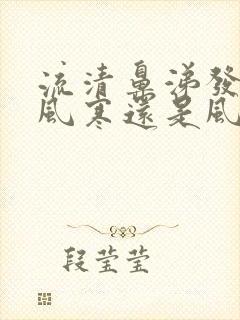 流清鼻涕發
風寒還是風
段莹莹